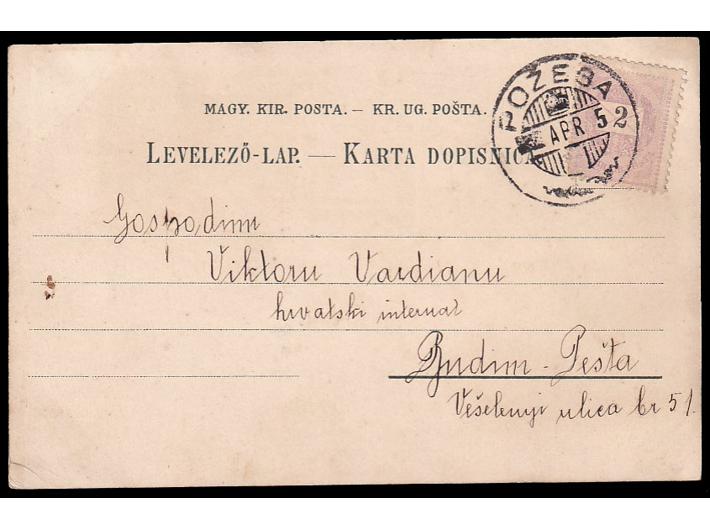 MAGY. KIR. POSTA. — KR. UG. POŠTA.
LEVELEZŐ-LAP. — KARTA DOPISNICA
POŽEGA
APR 5
2
Gospodinu
Viktoru Vardianu
hrvatski internat
Budim-Pešta
Vešelenji ulica br 51.